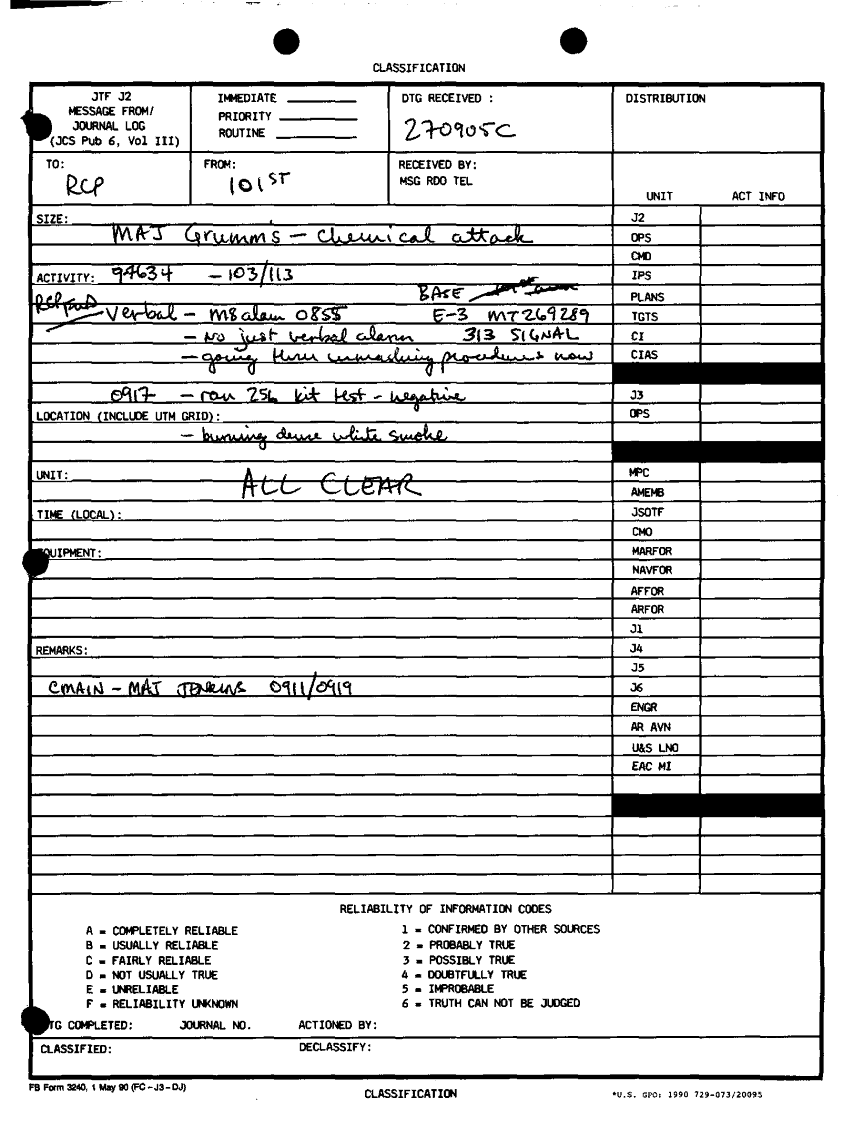 CLASSIFICATION
JTF J2
MESSAGE FROM/
JOURNAL LOG
(JCS Pub 6, Vol III)
IMMEDIATE
PRIORITY
ROUTINE
DTG RECEIVED :
270905C
DISTRIBUTION
TO:
RCP
FROM:
101ST
RECEIVED BY:
MSG RDO TEL
UNIT ACT INFO
SIZE:
MAJ Grumms - Chemical attack
ACTIVITY: 94634 - 103/113
BASE
RCP FWD Verbal - M8 alarm 0855 E-3 MT269289
- No just verbal alarm 313 SIGNAL
- going thru unmasking procedures now
0917 - ran 256 kit test - negative
LOCATION (INCLUDE UTM GRID):
- burning dense white smoke
UNIT:
ALL CLEAR
TIME (LOCAL):
EQUIPMENT:
REMARKS:
CMAIN - MAJ JENKINS 0911/0919
J2
OPS
CMD
IPS
PLANS
TGTS
CI
CIAS
J3
OPS
MPC
AMEMB
JSOTF
CMO
MARFOR
NAVFOR
AFFOR
ARFOR
J1
J4
J5
J6
ENGR
AR AVN
U&S LNO
EAC MI
RELIABILITY OF INFORMATION CODES
A = COMPLETELY RELIABLE 1 = CONFIRMED BY OTHER SOURCES
B = USUALLY RELIABLE 2 = PROBABLY TRUE
C = FAIRLY RELIABLE 3 = POSSIBLY TRUE
D = NOT USUALLY TRUE 4 = DOUBTFULLY TRUE
E = UNRELIABLE 5 = IMPROBABLE
F = RELIABILITY UNKNOWN 6 = TRUTH CAN NOT BE JUDGED
TG COMPLETED: JOURNAL NO. ACTIONED BY:
CLASSIFIED: DECLASSIFY:
FB Form 3240, 1 May 90 (FC-J3-DJ)
CLASSIFICATION
*U.S. GPO: 1990 729-073/20095